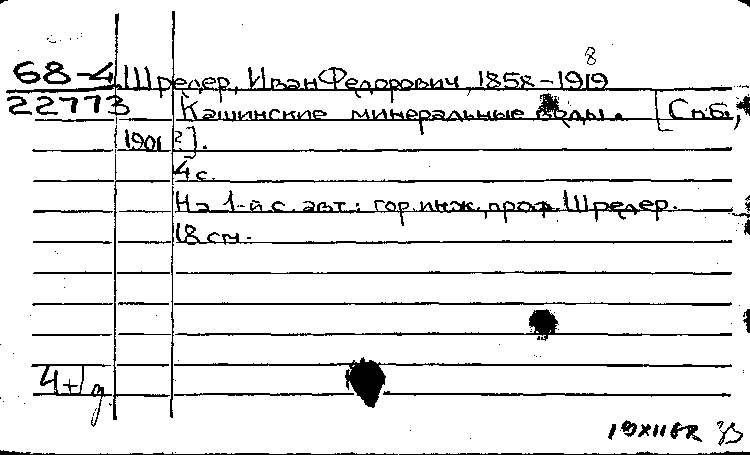 8
68-4 Шредер, Иван Федорович, 1858-1919
22773 Кашинские минеральные воды. [Спб.,
1901 ?].
4 с.
На 1-й с. авт.: гор. инж., проф. Шредер.
18 см.
4+1д